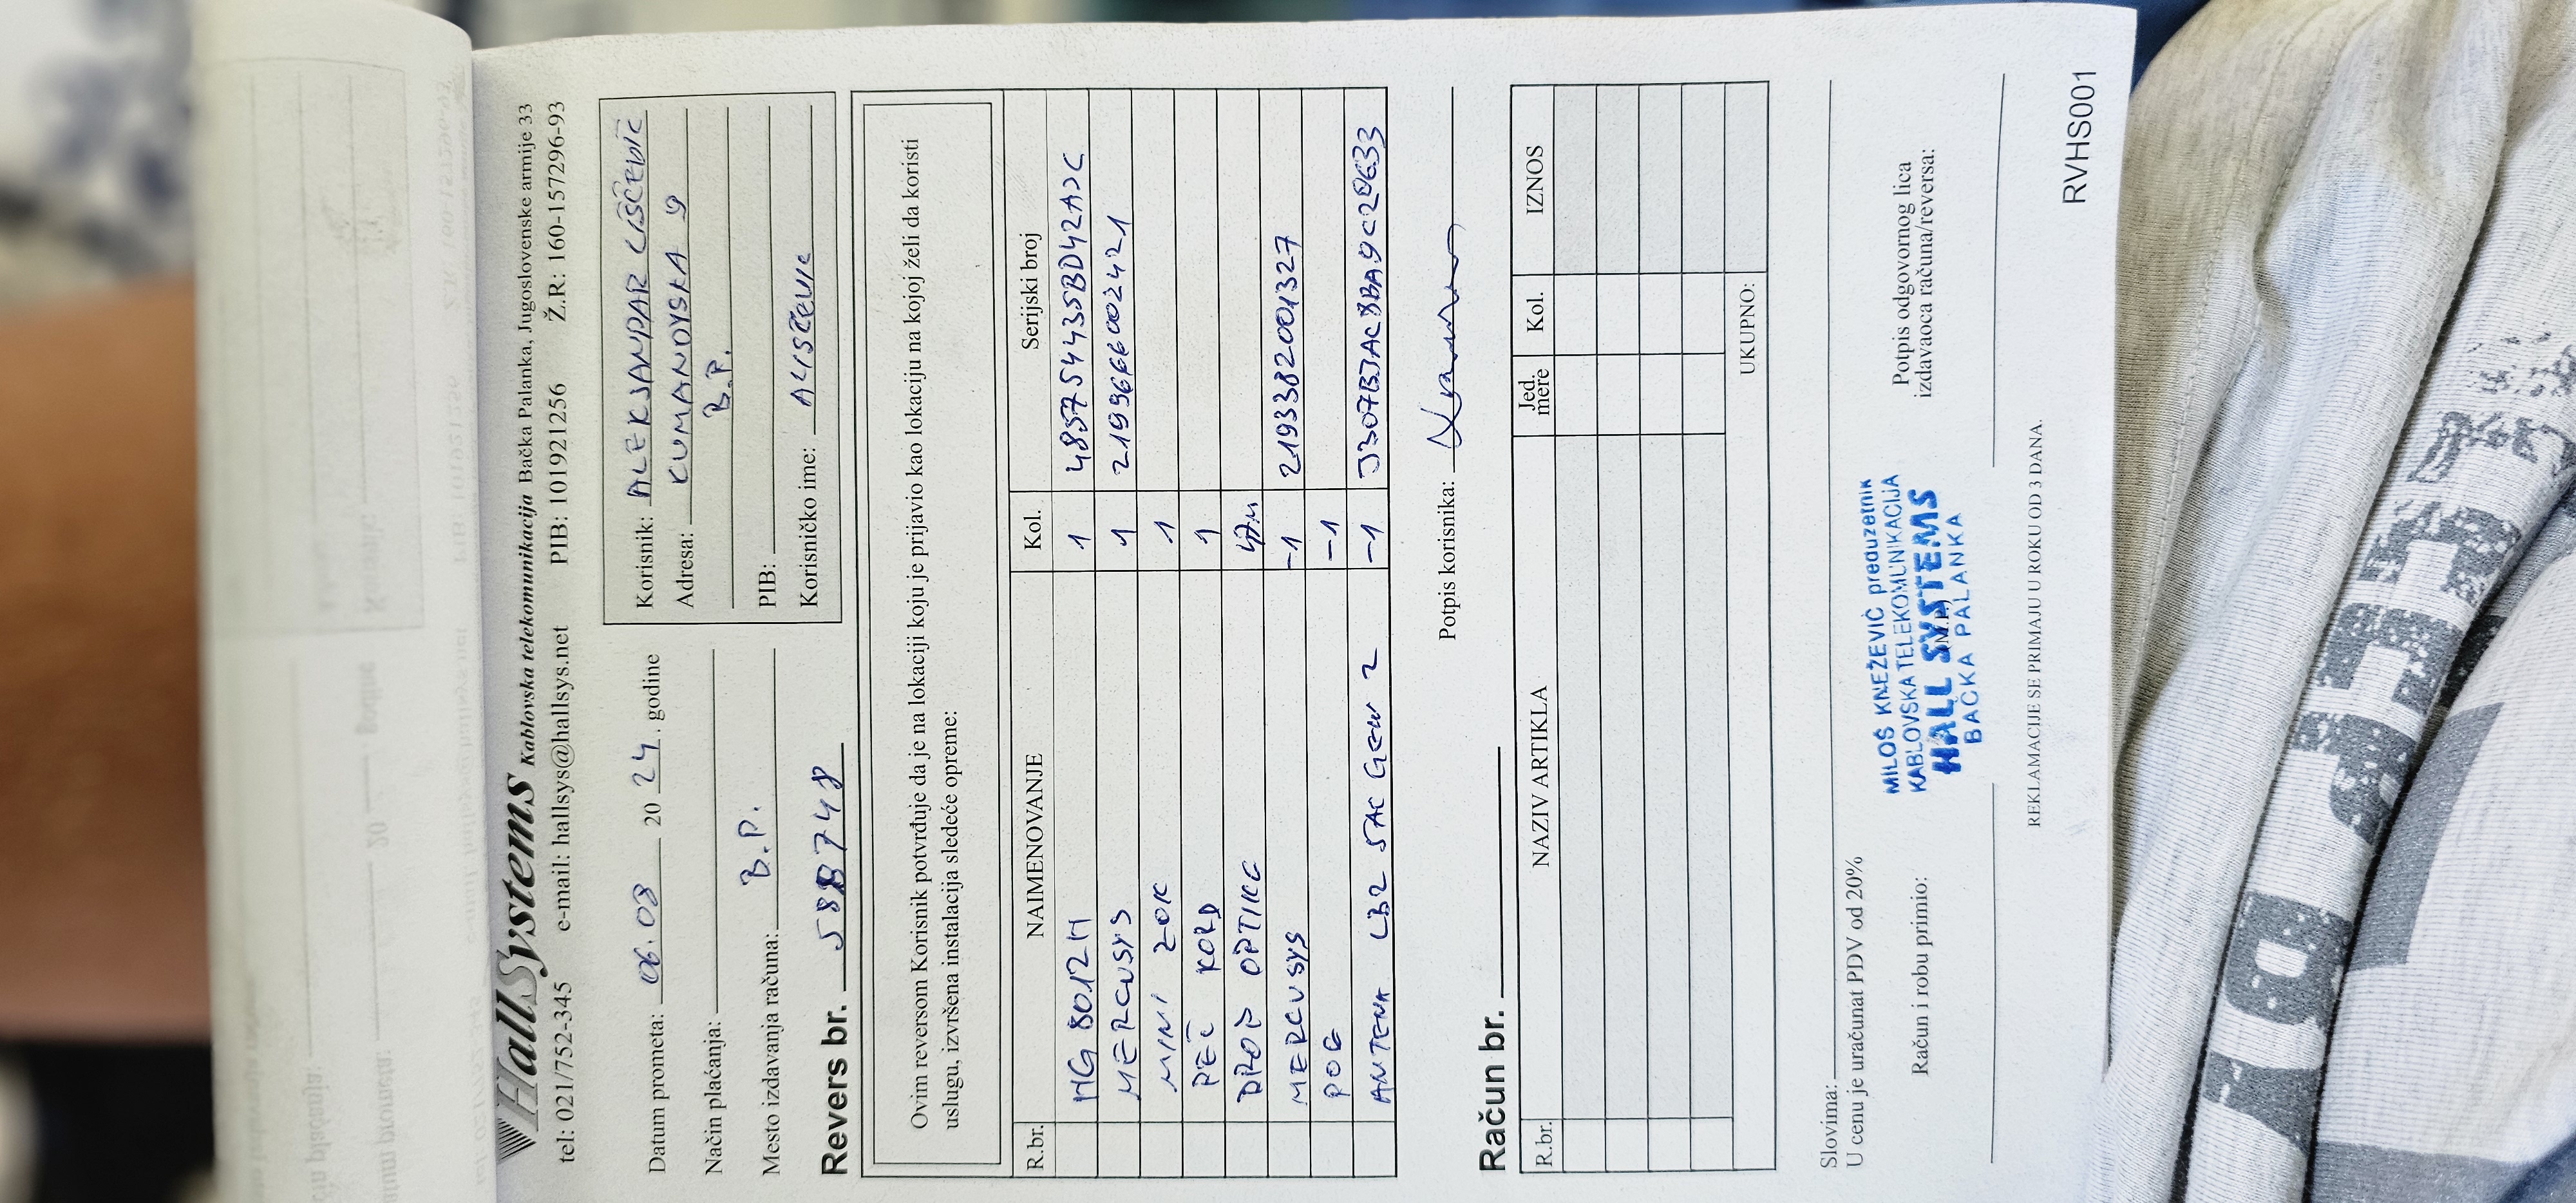 HallSystems Kablovska telekomunikacija Bačka Palanka, Jugoslovenske armije 33
tel: 021/752-345 e-mail: hallsys@hallsys.net PIB: 101921256 Ž.R.: 160-157296-93
Datum prometa: 06.08 20 24. godine
Način plaćanja:
Mesto izdavanja računa: B.P.
Korisnik: ALEKSANDAR LIŠČEVIĆ
Adresa: KUMANOVSKA 9
B.P.
PIB:
Korisničko ime: ALISČEVIC
Revers br. 5888748
Ovim reversom Korisnik potvrđuje da je na lokaciji koju je prijavio kao lokaciju na kojoj želi da koristi
uslugu, izvršena instalacija sledeće opreme:
R.br. NAIMENOVANJE Kol. Serijski broj
HG 8012H 1
MERCUSYS 1 2199666002421
MINI ZOK 1
PEČ KORD 1
DROP OPTIKE 47m
MERCUSYS -1 2193382001327
POE -1
ANTENA LB2 5AC GEN 2 -1
Potpis korisnika:
Račun br.
R.br. NAZIV ARTIKLA Jed. mere Kol. IZNOS
UKUPNO:
Slovima:
U cenu je uračunat PDV od 20%
Račun i robu primio:
MILOŠ KNEŽEVIĆ preduzetnik
KABLOVSKA TELEKOMUNIKACIJA
HALL SYSTEMS
BAČKA PALANKA
Potpis odgovornog lica
izdavaoca računa/reversa:
REKLAMACIJE SE PRIMAJU U ROKU OD 3 DANA.
RVHS001